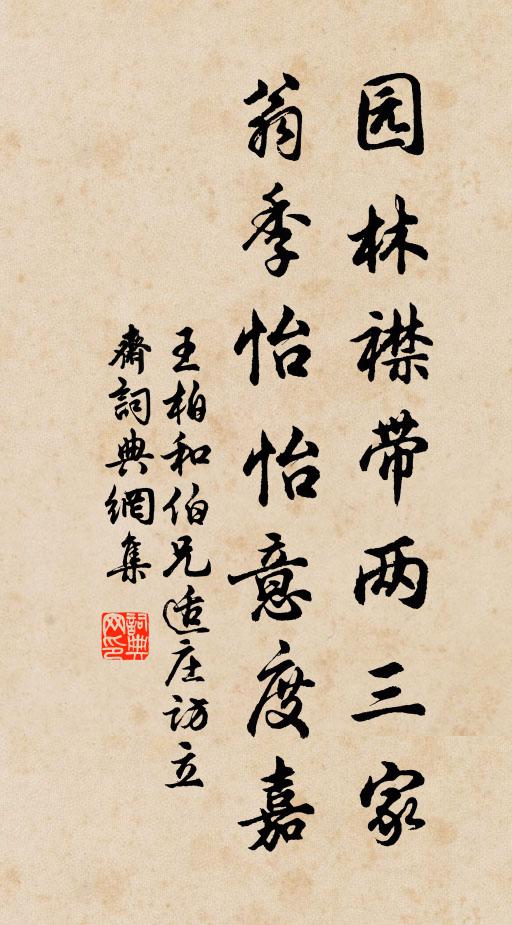 园林襟带两三家
翁季怡怡意度嘉
王柏和伯兄适庄访立
斋詞典網集
詞典
网印